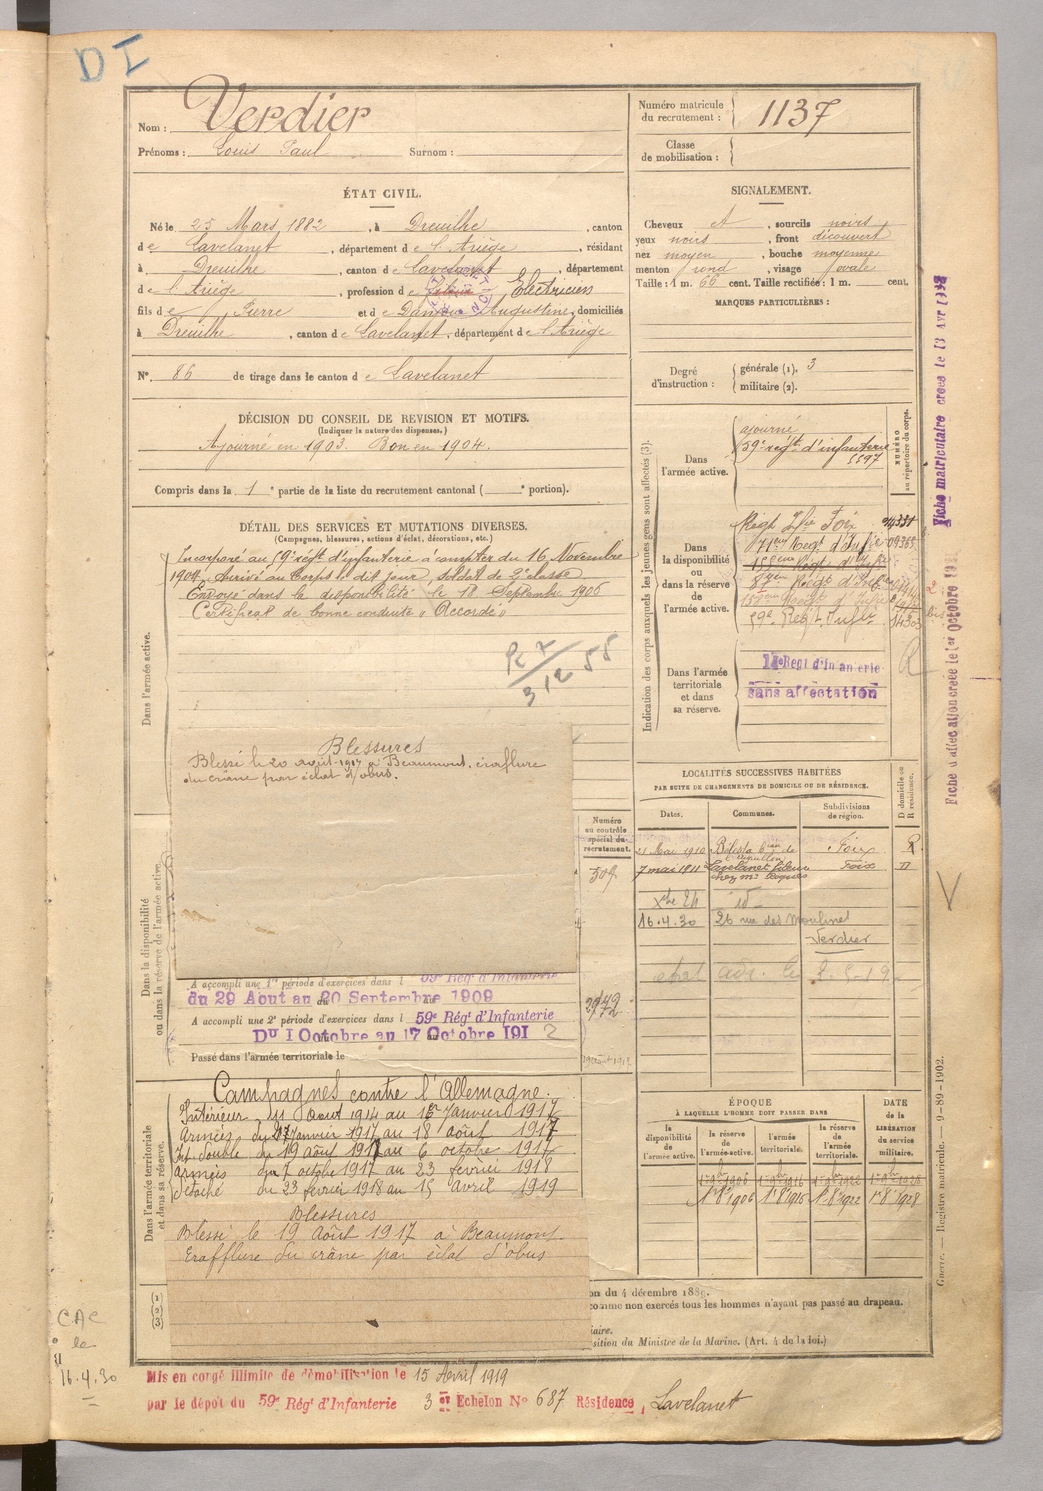 DI
Nom : Verdier
Prénoms : Louis Paul Surnom :
Numéro matricule du recrutement : 1137
Classe de mobilisation :
ÉTAT CIVIL.
Né le 25 Mars 1882, à Dreuilhe, canton
de Lavelanet, département de l'Ariège, résidant
à Dreuilhe, canton de Lavelanet, département
de l'Ariège, profession de Electricien
fils de Pierre et de Augustine, domiciliés
à Dreuilhe, canton de Lavelanet, département de l'Ariège
N° 86 de tirage dans le canton de Lavelanet
SIGNALEMENT.
Cheveux , sourcils noirs
yeux noirs, front découvert
nez moyen, bouche moyenne
menton rond, visage ovale
Taille : 1 m. 66 cent. Taille rectifiée : 1 m. cent.
MARQUES PARTICULIÈRES :
Degré d'instruction : générale (1). 3
militaire (2).
DÉCISION DU CONSEIL DE REVISION ET MOTIFS.
(Indiquer la nature des dispenses.)
Ajourné en 1903. Bon en 1904.
Compris dans la 1e partie de la liste du recrutement cantonal ( e portion).
DÉTAIL DES SERVICES ET MUTATIONS DIVERSES.
(Campagnes, blessures, actions d'éclat, décorations, etc.)
Dans l'armée active.
Incorporé au 59e régt d'infanterie à compter du 16 Novembre
1904. Arrivé au Corps le dit jour, soldat de 2e classe
Envoyé dans la disponibilité le 18 Septembre 1906
Certificat de bonne conduite "Accordé"
Blessures
Blessé le 20 août 1917 à Beaumont, éraflure
du crâne par éclat d'obus.
Dans la disponibilité ou dans la réserve de l'armée active.
A accompli une 1re période d'exercices dans l 59e Rég. d'Infanterie
du 29 Aout au 20 Septembre 1909
A accompli une 2e période d'exercices dans l 59e Régt d'Infanterie
Du 1 Octobre au 17 Octobre 1912
Passé dans l'armée territoriale le
Dans l'armée territoriale et dans sa réserve.
Campagnes contre l'Allemagne.
Intérieur du 11 août 1914 au 16 Janvier 1917
Armées du 17 Janvier 1917 au 18 août 1917
Int double du 19 août 1917 au 6 octobre 1917
Armées du 7 octobre 1917 au 23 février 1918
Détaché du 23 février 1918 au 15 Avril 1919
Blessures
Blessé le 19 Août 1917 à Beaumont
Erafflure du crâne par éclat d'obus
Indication des corps auxquels les jeunes gens sont affectés (3).
NUMÉRO au répertoire du corps.
Dans l'armée active.
ajourné
59e régt d'infanterie
5597
Dans la disponibilité ou dans la réserve de l'armée active.
Régt Inf. Foix
59e Regt Inft 14303
Dans l'armée territoriale et dans sa réserve.
sans affectation
LOCALITÉS SUCCESSIVES HABITÉES
PAR SUITE DE CHANGEMENTS DE DOMICILE OU DE RÉSIDENCE.
Dates. Communes. Subdivisions de région. D domicile ou R résidence.
Numéro au contrôle spécial du recrutement.
21 Mai 1910 Foix R
7 mai 1911 Lavelanet Foix D
16.4.30 26 rue des Moulines
Verdier
ÉPOQUE
À LAQUELLE L'HOMME DOIT PASSER DANS
la disponibilité de l'armée active. la réserve de l'armée active. l'armée territoriale. la réserve de l'armée territoriale.
DATE de la LIBÉRATION du service militaire.
1er 8bre 1906 1er 8bre 1916 1er 8bre 1922 1er 8bre 1928
on du 4 décembre 1889.
comme non exercés tous les hommes n'ayant pas passé au drapeau.
iaire.
sition du Ministre de la Marine. (Art. 4 de la loi.)
Mis en congé illimité de démobilisation le 15 Avril 1919
par le dépôt du 59e Régt d'Infanterie 3 Echelon No 687 Résidence, Lavelanet
Guerre. — Registre matricule. — 9-89-1902.
CAC
le
16.4.30